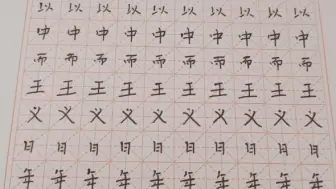 以以以以以以以以以
中中中中中中中中中
而而而而而而而而而
王王王王王王王王王
义义义义义义义义义
日日日日日日日日日
年年年年年年年年年